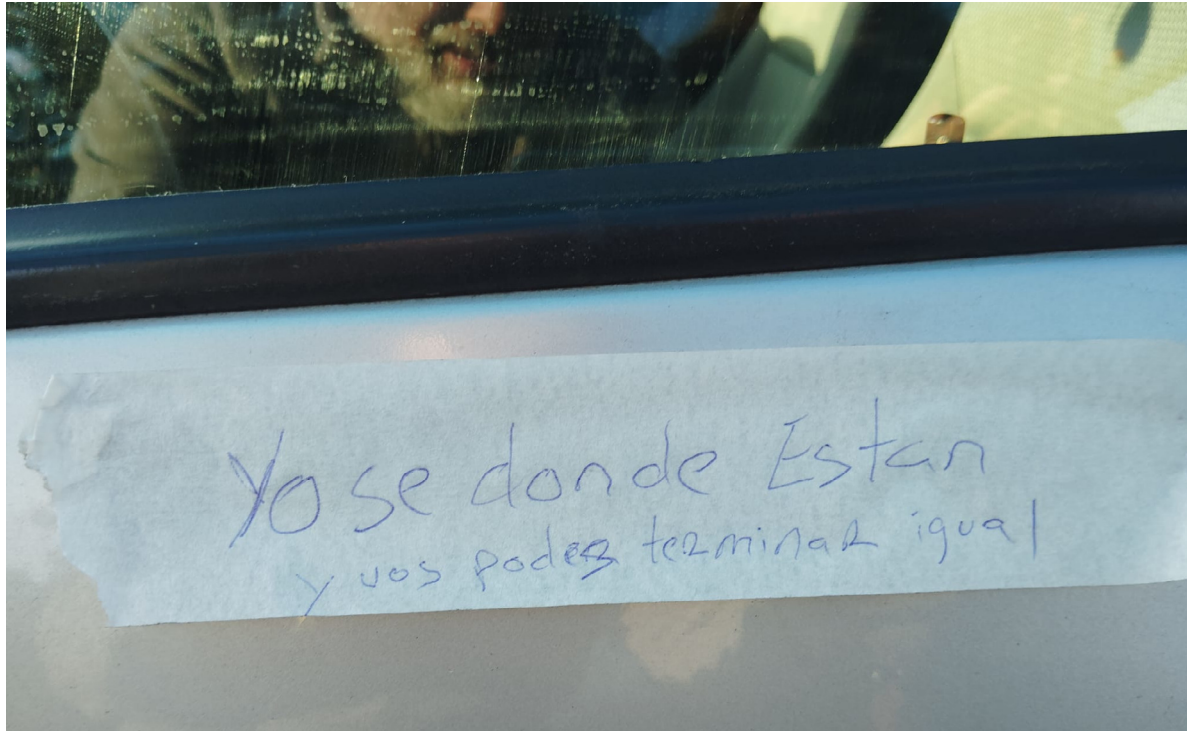 Yo se donde Estan
y vos podes terminar igual